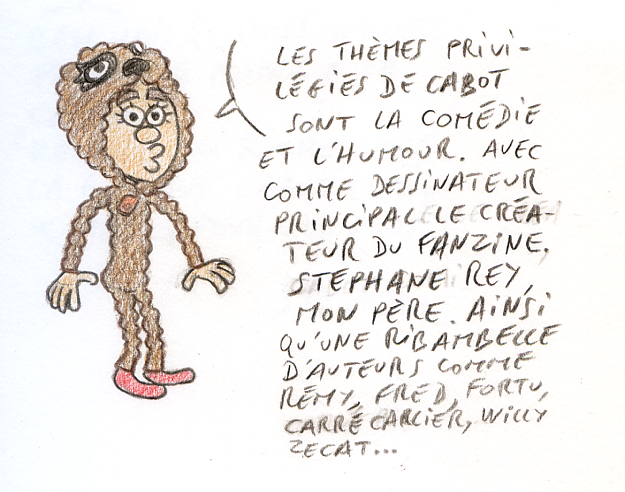 LES THÈMES PRIVI-
LÉGIÉS DE CABOT
SONT LA COMÉDIE
ET L'HUMOUR. AVEC
COMME DESSINATEUR
PRINCIPAL LE CRÉA-
TEUR DU FANZINE.
STÉPHANE REY,
MON PÈRE. AINSI
QU'UNE RIBAMBELLE
D'AUTEURS COMME
RÉMY, FRED, FORTU,
CARRÉ CARLIER, WILLY
ZECAT...